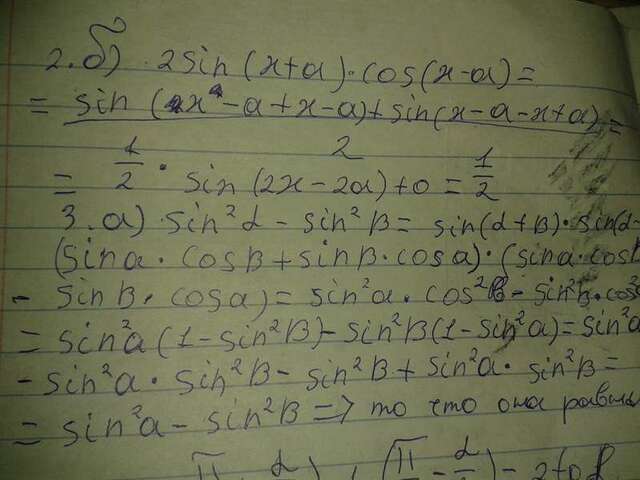 2.б) 2sin(x+a)·cos(x-a)=
= sin(x-a+x-a)+sin(x-a-x+a) =
2
= 1/2 · sin(2x-2a)+0 = 1/2
3.а) sin²α - sin²B = sin(α+B)·sin(α-
(sina·cosB+sinB·cosa)·(sina·cosB
- sinB·cosa)=sin²a·cos²B-sin²B·cos²
= sin²a(1-sin²B)-sin²B(1-sin²a)=sin²a
- sin²a·sin²B-sin²B+sin²a·sin²B=
= sin²a-sin²B => то что она равны